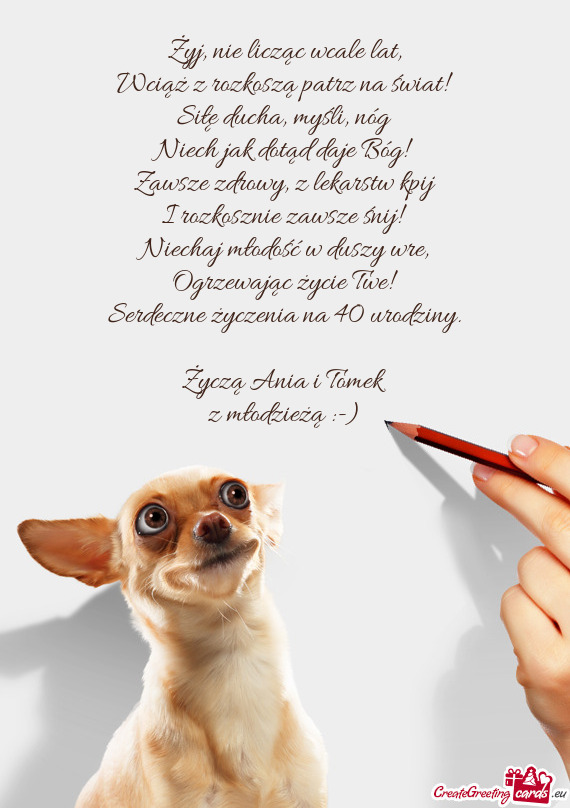 Żyj, nie licząc wcale lat,
Wciąż z rozkoszą patrz na świat!
Siłę ducha, myśli, nóg
Niech jak dotąd daje Bóg!
Zawsze zdrowy, z lekarstw kpij
I rozkosznie zawsze śnij!
Niechaj młodość w duszy wre,
Ogrzewając życie Twe!
Serdeczne życzenia na 40 urodziny.
Życzą Ania i Tomek
z młodzieżą :-)
CreateGreeting cards .eu